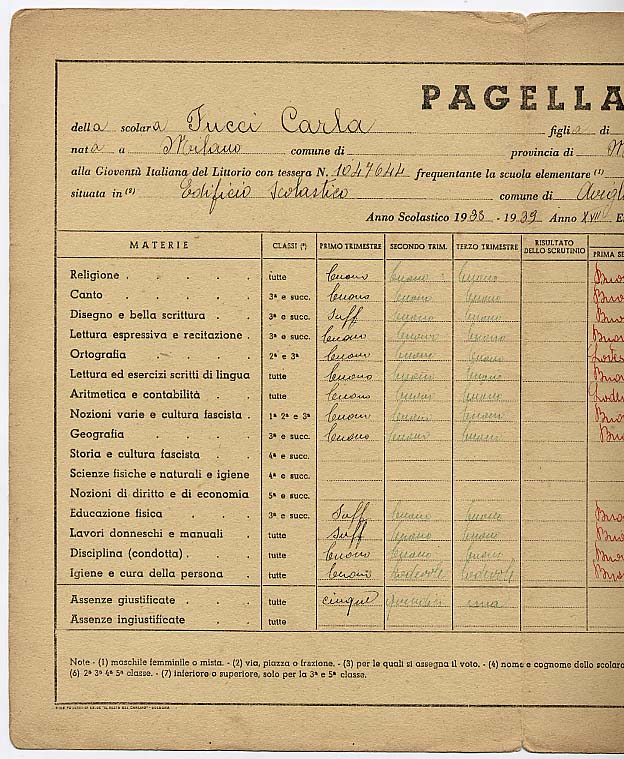 PAGELLA
della scolara Tucci Carla figlia di
nata a Milano comune di provincia di M
alla Gioventù Italiana del Littorio con tessera N. 1047644 frequentante la scuola elementare (1)
situata in (2) Edificio Scolastico comune di Avigl
Anno Scolastico 1938 - 1939 Anno XVII E
MATERIE CLASSI (*) PRIMO TRIMESTRE SECONDO TRIM. TERZO TRIMESTRE RISULTATO DELLO SCRUTINIO PRIMA SE
Religione tutte buono buono buono Buo
Canto 3ª e succ. buono buono buono Buo
Disegno e bella scrittura 3ª e succ. Suff buono buono Buo
Lettura espressiva e recitazione 3ª e succ. buono buono buono Buo
Ortografia 2ª e 3ª buono buono buono Lode
Lettura ed esercizi scritti di lingua tutte buono buono buono Buo
Aritmetica e contabilità tutte buono buono buono Lode
Nozioni varie e cultura fascista 1ª 2ª e 3ª buono buono buono Buo
Geografia 3ª e succ. buono buono buono Buo
Storia e cultura fascista 4ª e succ.
Scienze fisiche e naturali e igiene 4ª e succ.
Nozioni di diritto e di economia 5ª e succ.
Educazione fisica 3ª e succ. Suff buono buono Buo
Lavori donneschi e manuali tutte Suff buono buono Buo
Disciplina (condotta) tutte buono buono buono Buo
Igiene e cura della persona tutte buono lodevole lodevole Buo
Assenze giustificate tutte cinque una
Assenze ingiustificate tutte
Note - (1) maschile femminile o mista. - (2) via, piazza o frazione. - (3) per le quali si assegna il voto. - (4) nome e cognome dello scolaro
(6) 2ª 3ª 4ª 5ª classe. - (7) inferiore o superiore, solo per la 3ª e 5ª classe.